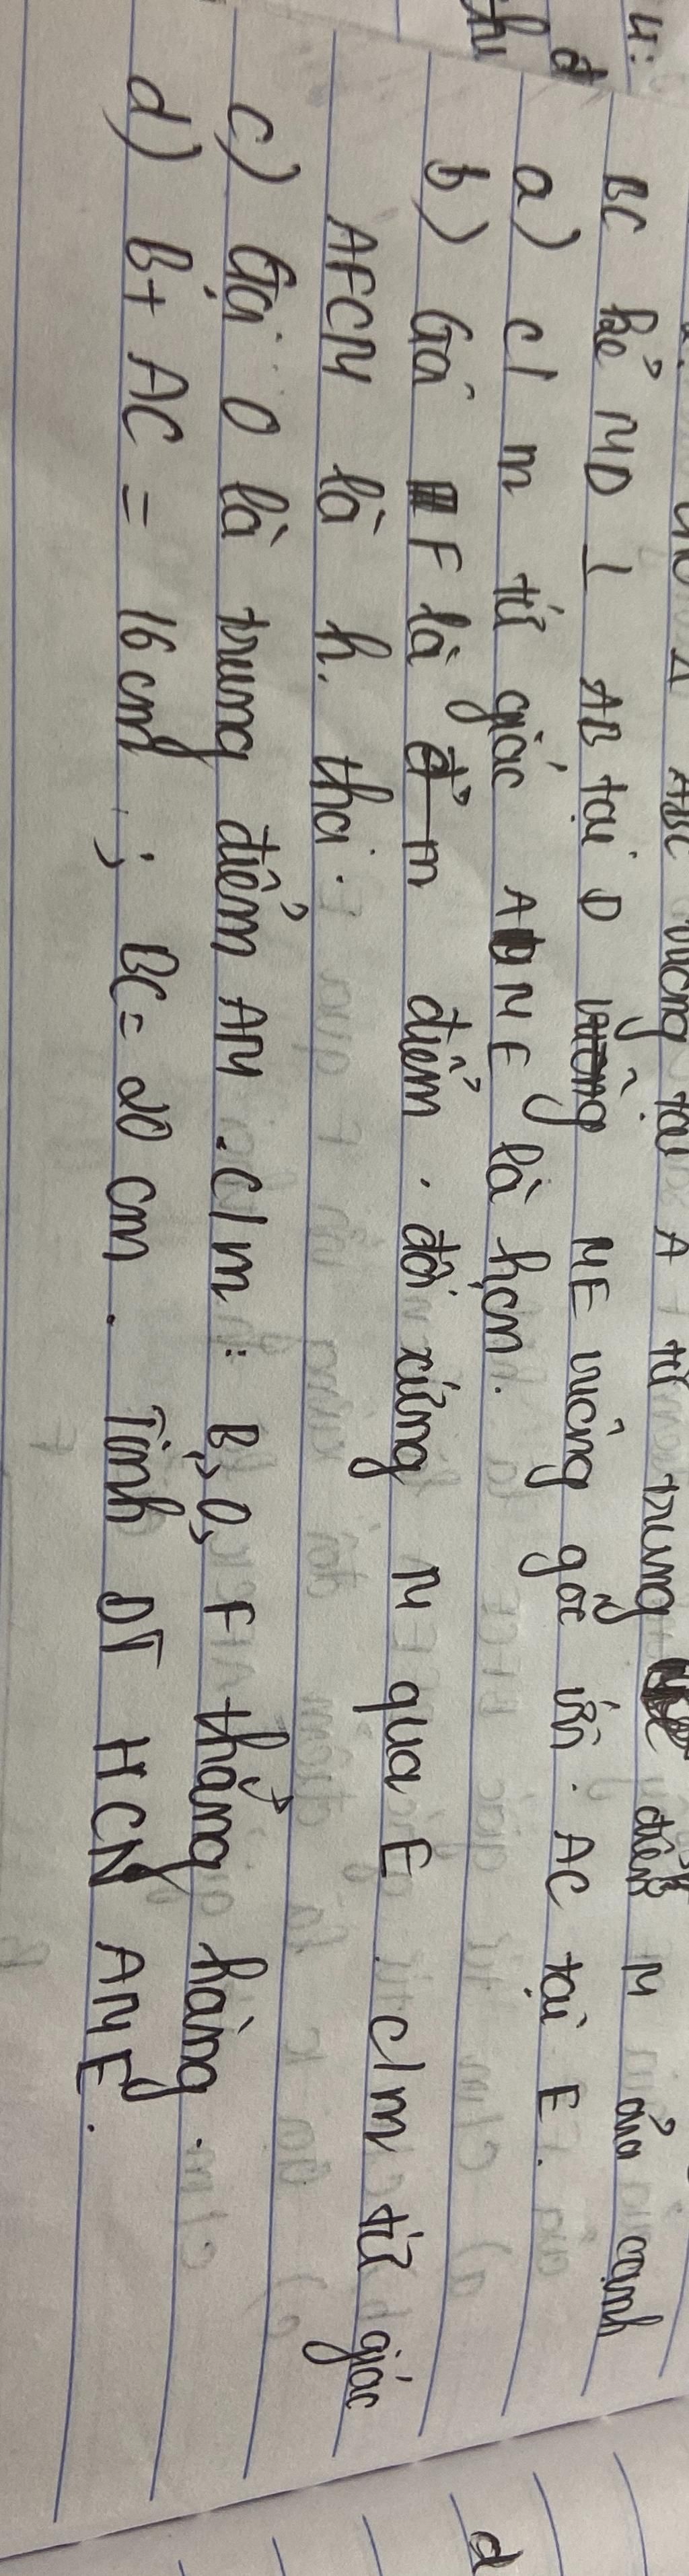 ABC vuông tại A từ trung điểm M của cạnh
BC kẻ MD ⊥ AB tại D ME vuông góc với AC tại E.
a) c/m tứ giác ADME là hcn.
b) Gọi F là điểm đối xứng M qua E c/m tứ giác
AFCM là h. thoi.
c) Gọi O là trung điểm AM. c/m: B, O, F thẳng hàng.
d) B+ AC = 16 cm ; BC = 20 cm. Tính DT HCN AME.